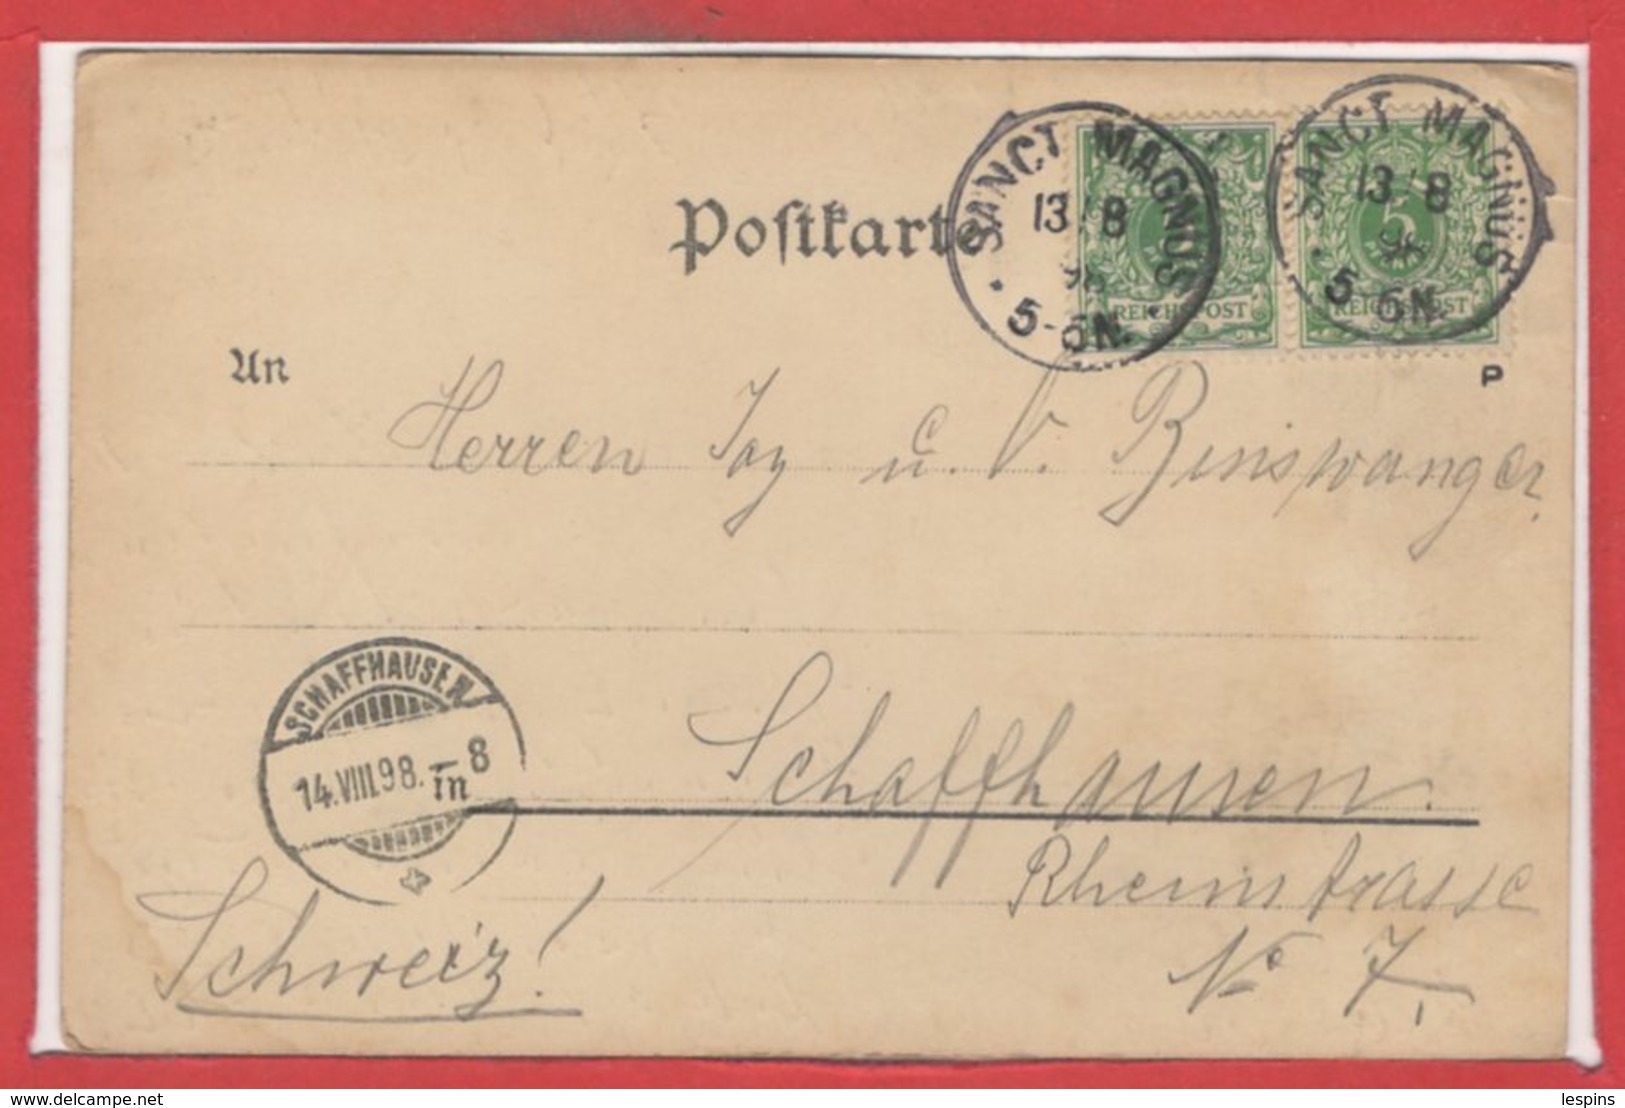 Postkarte
SANCT MAGNUS
13/8
98
5-6N.
REICHSPOST
SANCT MAGNUS
13/8
98
5-6N.
5
REICHSPOST
P
An
Herren Joy u. V. Binswanger,
SCHAFFHAUSEN
14.VIII.98.–8
Schaffhausen
Rheinstrasse
No 7,
Schweiz!
https://www.delcampe.net
lespins